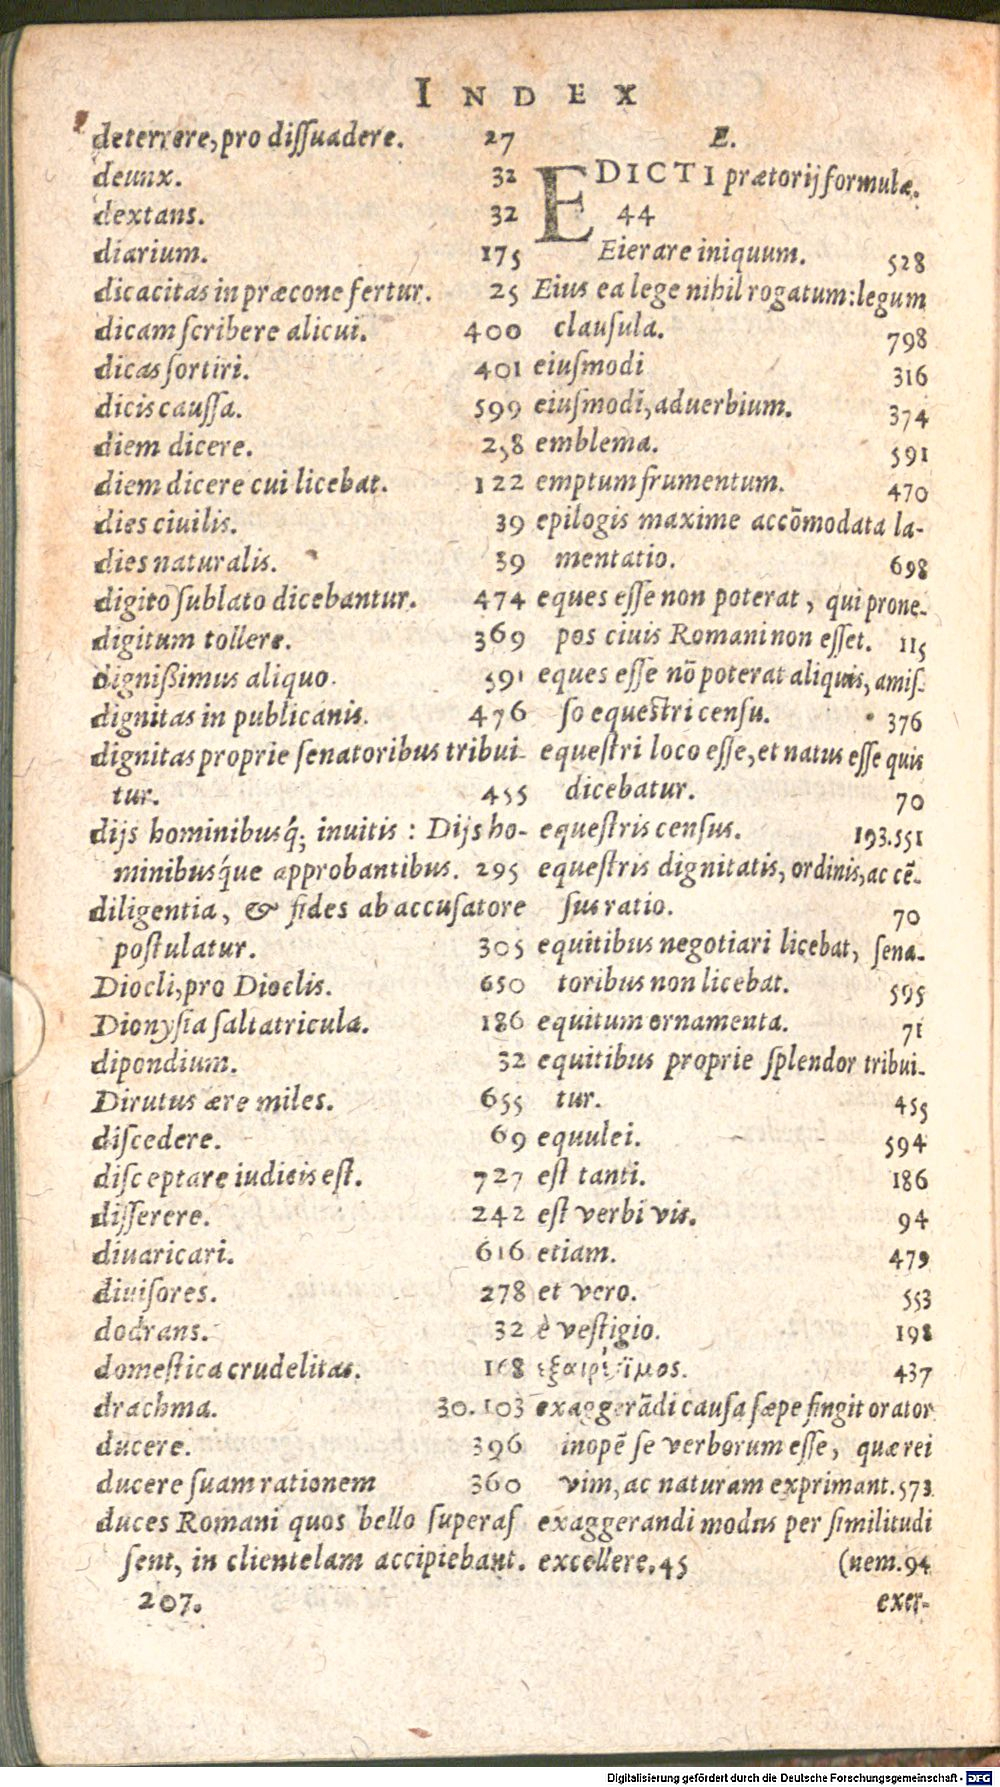 INDEX
deterrere, pro diſſuadere. 27
deunx. 32
dextans. 32
diarium. 175
dicacitas in præcone fertur. 25
dicam ſcribere alicui. 400
dicas ſortiri. 401
dicis cauſſa. 599
diem dicere. 258
diem dicere cui licebat. 122
dies ciuilis. 39
dies naturalis. 39
digito ſublato dicebantur. 474
digitum tollere. 369
digniſsimus aliquo. 591
dignitas in publicanis. 476
dignitas proprie ſenatoribus tribui-
tur. 455
dijs hominibusq́; inuitis: Dijs ho-
minibusq́ue approbantibus. 295
diligentia, & fides ab accuſatore
poſtulatur. 305
Diocli, pro Dioclis. 650
Dionyſia ſaltatricula. 186
dipondium. 32
Dirutus ære miles. 655
diſcedere. 69
diſceptare iudicis eſt. 727
diſſerere. 242
diuaricari. 616
diuiſores. 278
dodrans. 32
domeſtica crudelitas. 168
drachma. 30.103
ducere. 396
ducere ſuam rationem 360
duces Romani quos bello ſuperaſ
ſent, in clientelam accipiebant.
207.
E.
EDICTI prætorij formulæ.
44
Eierare iniquum. 528
Eius ea lege nihil rogatum: legum
clauſula. 798
eiuſmodi 316
eiuſmodi, aduerbium. 374
emblema. 591
emptum frumentum. 470
epilogis maxime accõmodata la-
mentatio. 698
eques eſſe non poterat, qui prone-
pos ciuis Romani non eſſet. 115
eques eſſe nõ poterat aliquis, amiſ-
ſo equeſtri cenſu. 376
equeſtri loco eſſe, et natus eſſe quis
dicebatur. 70
equeſtris cenſus. 193.551
equeſtris dignitatis, ordinis, ac cẽ-
ſus ratio. 70
equitibus negotiari licebat, ſena-
toribus non licebat. 595
equitum ornamenta. 71
equitibus proprie ſplendor tribui-
tur. 455
equulei. 594
eſt tanti. 186
eſt verbi vis. 94
etiam. 479
et vero. 553
è veſtigio. 198
437
exaggerãdi cauſa ſæpe fingit orator
inopẽ ſe verborum eſſe, quæ rei
vim, ac naturam exprimant. 573.
exaggerandi modus per ſimilitudi
excellere. 45 (nem. 94
exer-
Digitalisierung gefördert durch die Deutsche Forschungsgemeinschaft - DFG